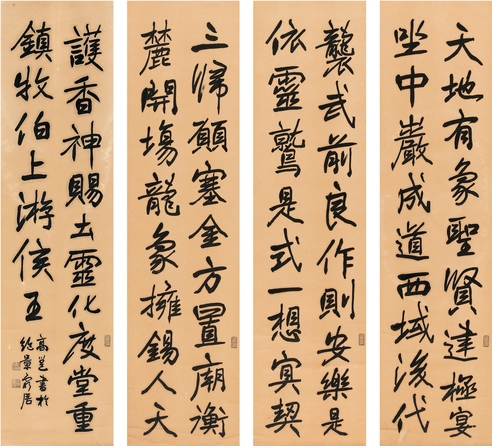 天地有象聖賢建極宴
坐中巖成道西域後代
襲武前良作則安樂是
依靈鷲是式一想冥契
三歸願塞金方置廟衡
麓開場龍象擁錫人天
護香神賜土靈化度堂重
鎮牧伯上游侯王
高邕書於